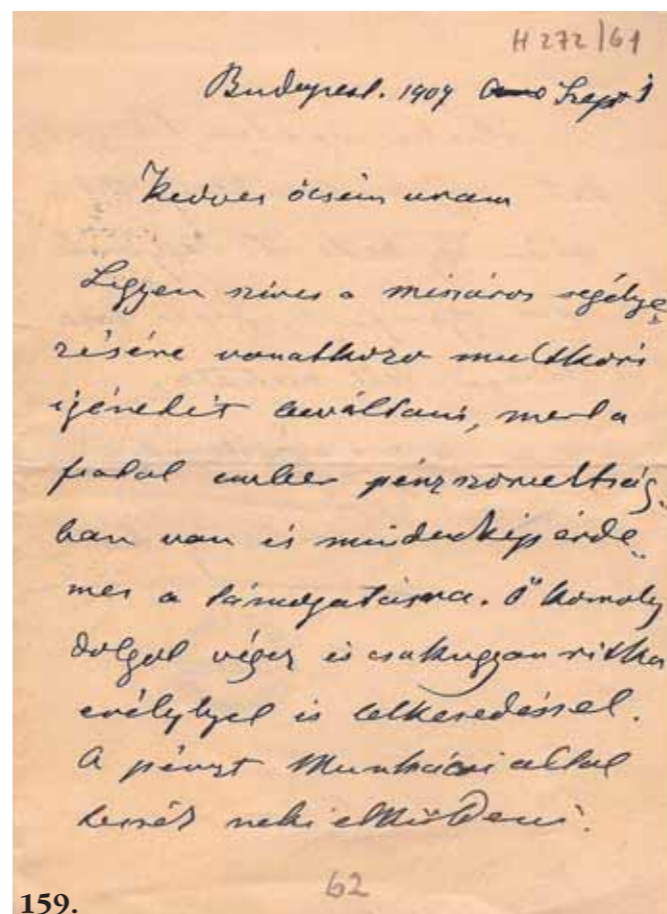 H 272/61
Budapest. 1909 Szept 1
Kedves öcsém uram
Legyen szíves a mészáros segélye
zésére vonatkozo multkori
igéretét beváltani, mert a
fiatal ember pénzszorultság
ban van és mindenkép érde
mes a támogatásra. Ő komoly
dolgot végez és csakugyan ritka
erélylyel és lelkesedéssel.
A pénzt Munkácsi által
tessék neki elküldeni.
62
159.